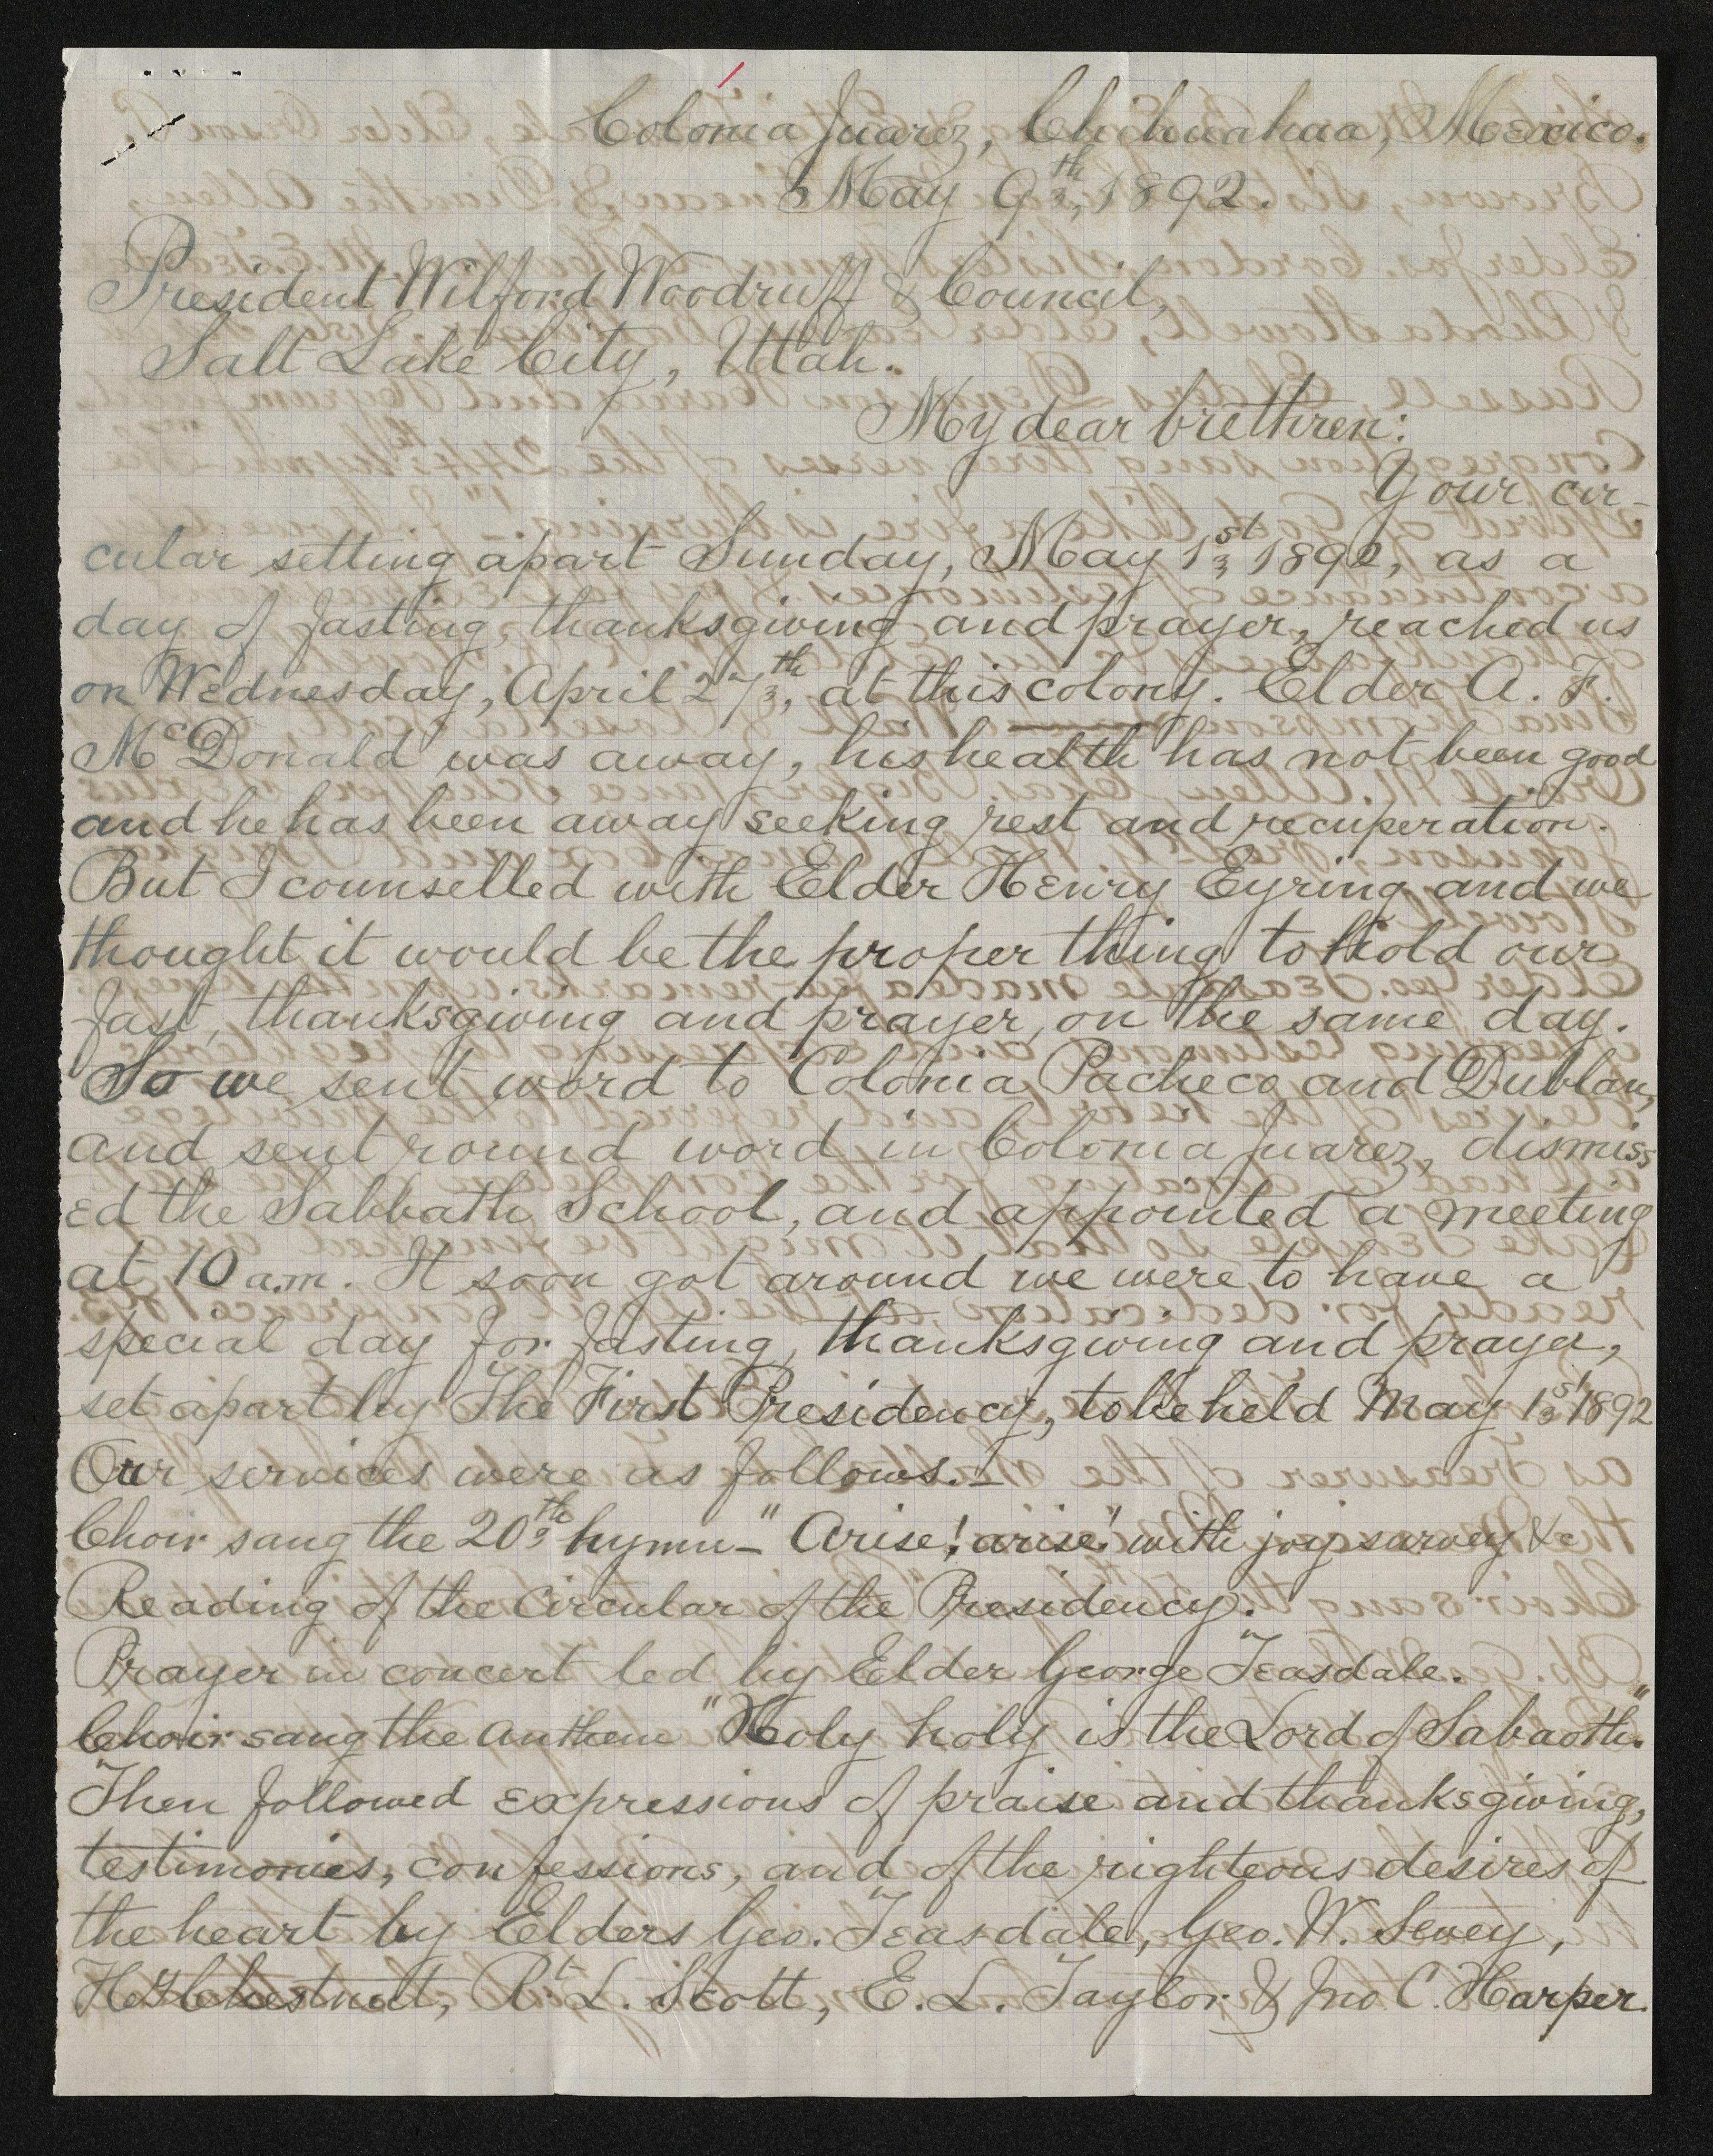 Colonia Juarez, Chihuahua, Mexico.
May 9th, 1892.
President Wilford Woodruff & Council,
Salt Lake City, Utah.
My dear brethren:
Your cir-
cular setting apart Sunday, May 1st 1892, as a
day of fasting, thanksgiving and prayer, reached us
on Wednesday, April 27th, at this colony. Elder A. F.
McDonald was away, his health has not been good
and he has been away seeking rest and recuperation.
But I counselled with Elder Henry Eyring and we
thought it would be the proper thing to hold our
fast, thanksgiving and prayer, on the same day.
So we sent word to Colonia Pacheco and Dublan,
and sent round word in Colonia Juarez, dismiss
ed the Sabbath School, and appointed a meeting
at 10 a.m. It soon got around we were to have a
special day for fasting, thanksgiving and prayer,
set apart by The First Presidency, to be held May 1st 1892
Our services were as follows.—
Choir sang the 20th hymn— "Arise! arise" with joy survey &c
Reading of the Circular of the Presidency.
Prayer in concert led by Elder George Teasdale.
Choir sang the anthem "Holy holy is the Lord of Sabaoth."
Then followed expressions of praise and thanksgiving,
testimonies, confessions, and of the righteous desires of
the heart by Elders Geo. Teasdale, Geo. W. Sevey,
Chestnutt, Rt. L. Scott, E. L. Taylor & Jno C. Harper.